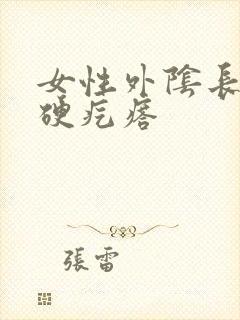 女性外陰長
硬疙瘩
張雷